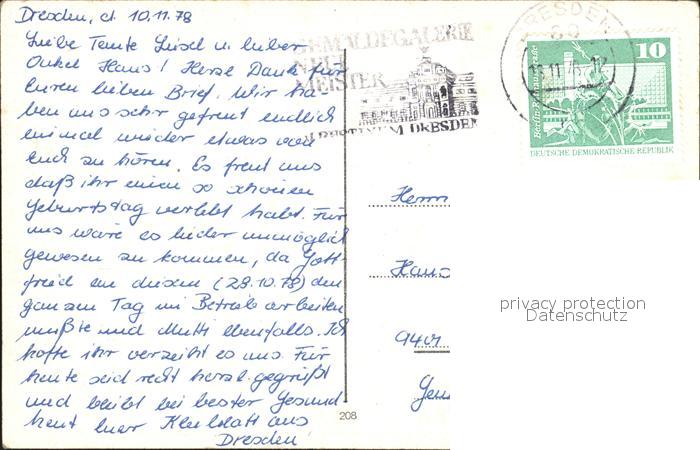 Dresden, d. 10.11.78
Liebe Tante Liesel u. lieber
Onkel Hans! Herzl. Dank für
Euren lieben Brief. Wir ha-
ben uns sehr gefreut endlich
einmal wieder etwas von
Euch zu hören. Es freut uns
daß ihr einen so schönen
Geburtstag verlebt habt. Für
uns wäre es leider unmöglich
gewesen zu kommen, da Gott-
fried an diesem (28.10.78) den
ganzen Tag im Betrieb arbeiten
mußte und Mutti ebenfalls. Ich
hoffe ihr verzeiht es uns. Für
heute seid recht herzl. gegrüßt
und bleibt bei bester Gesund
heit Euer Kleeblatt aus
Dresden
GEMÄLDEGALERIE
NEUE
MEISTER
ALBERTINUM DRESDEN
DRESDEN
10
Berlin
DEUTSCHE DEMOKRATISCHE REPUBLIK
Herrn
Hans
9401
208
privacy protection
Datenschutz